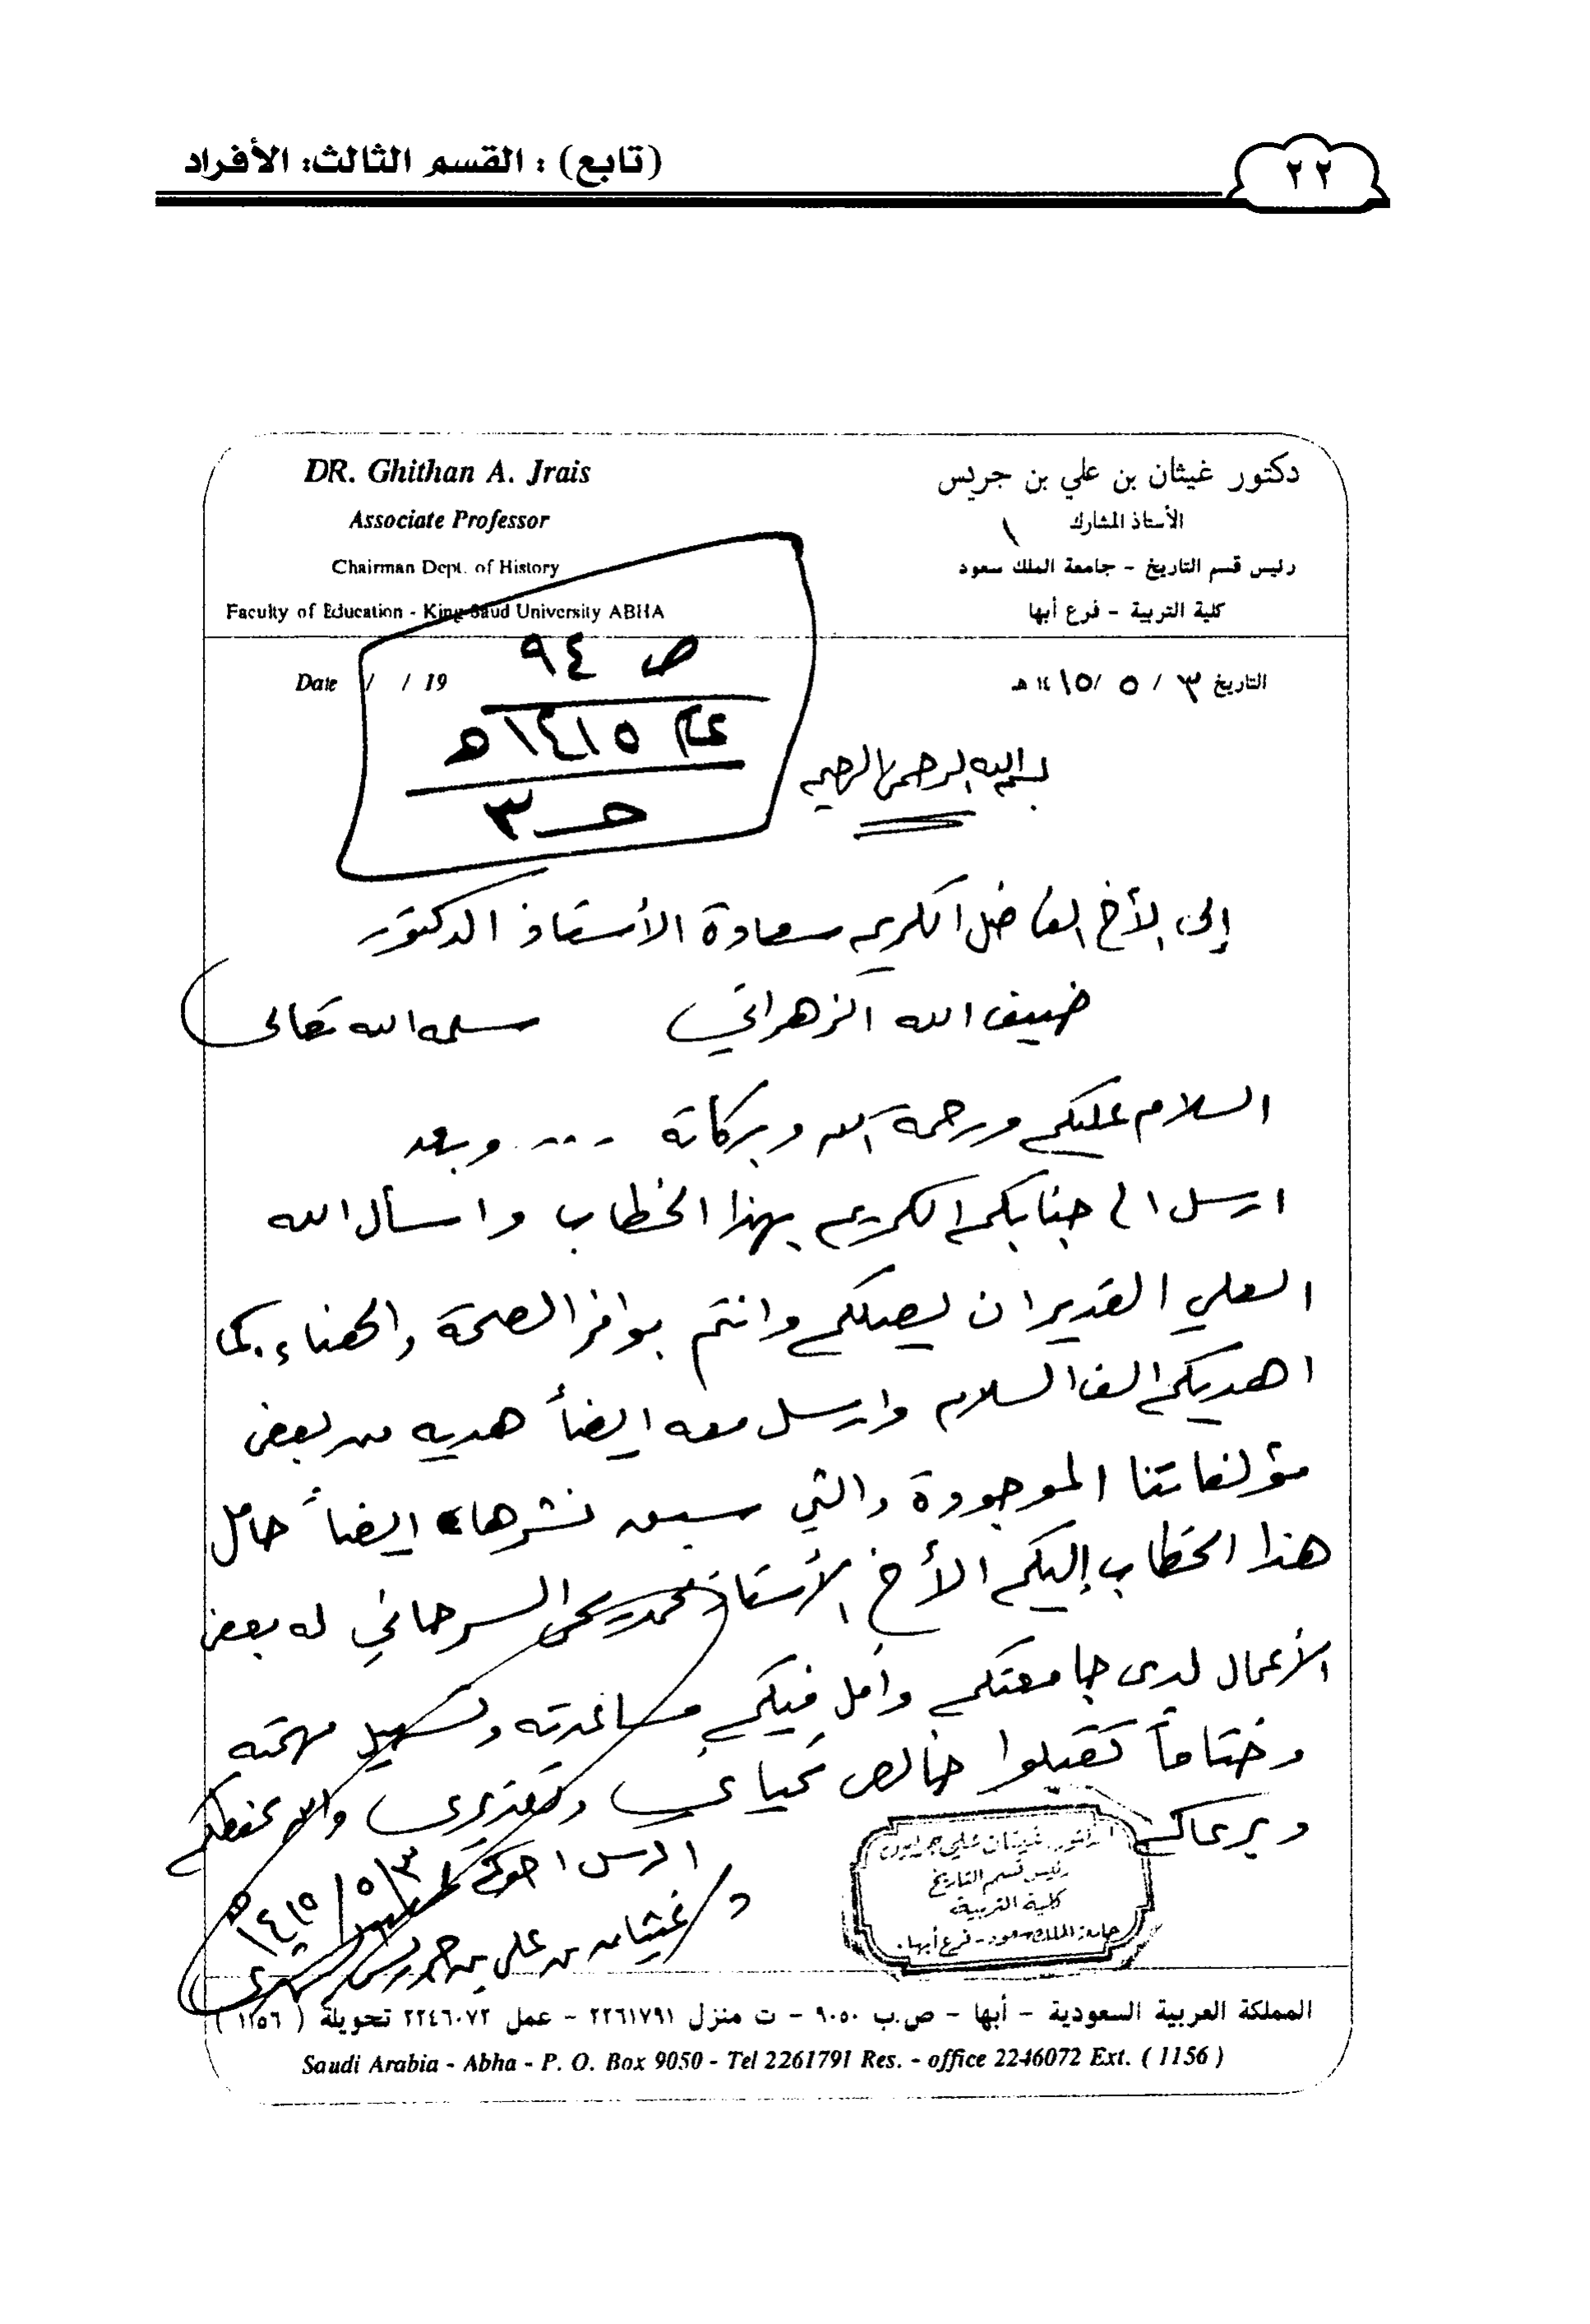 (تابع) : القسم الثالث: الأفراد
٢٢
DR. Ghithan A. Jrais
Associate Professor
Chairman Dept. of History
Faculty of Education - King Saud University ABHA
دكتور غيثان بن علي بن جريس
الأستاذ المشارك
رئيس قسم التاريخ - جامعة الملك سعود
كلية التربية - فرع أبها
Date / / 19
التاريخ ٣ / ٥ / ١٤١٥ هـ
ص ٩٤
عام ١٤١٥هـ
حـ ٣
بسم الله الرحمن الرحيم
إلى الأخ الفاضل الكريم سعادة الأستاذ الدكتور
ضيف الله الزهراني سلمه الله تعالى
السلام عليكم ورحمة الله وبركاته .... وبعد
ارسل الى جنابكم الكريم بهذا الخطاب واسأل الله
العلي القدير ان يصلكم وانتم بوافر الصحة والهناء، كما
اهديكم الف السلام وارسل معه ايضاً هديه من بعض
مؤلفاتنا الموجودة والتي سبق نشرها، ايضاً حامل
هذا الخطاب إليكم الأخ الأستاذ محمد يحى السرحاني له بعض
الأعمال لدى جامعتكم وآمل فيكم مساعدته وتسهيل مهمته
وختاماً تقبلوا خالص تحياتي وتقديري والله يحفظكم
ويرعاكم
المرسل اخوكم
د / غيثان بن علي بن جريس الشهري
٣ / ٥ / ١٤١٥هـ
الدكتور غيثان علي جريس
رئيس قسم التاريخ
كلية التربية
جامعة الملك سعود - فرع أبها
المملكة العربية السعودية - أبها - ص.ب ٩٠٥٠ - ت منزل ٢٢٦١٧٩١ - عمل ٢٢٤٦٠٧٢ تحويلة ( ١١٥٦ )
Saudi Arabia - Abha - P. O. Box 9050 - Tel 2261791 Res. - office 2246072 Ext. ( 1156 )